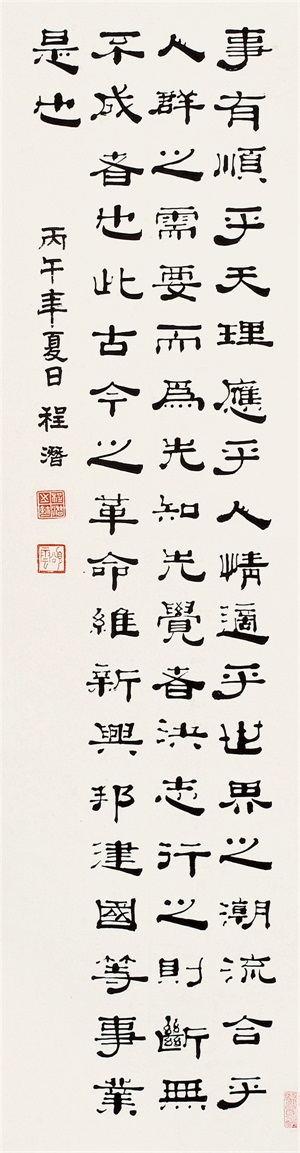 事有順乎天理應乎人情適乎世界之潮流合乎
人群之需要而爲先知先覺者決志行之則斷無
不成者也此古今之革命維新興邦建國等事業
是也
丙午年夏日 程潛
頌雲